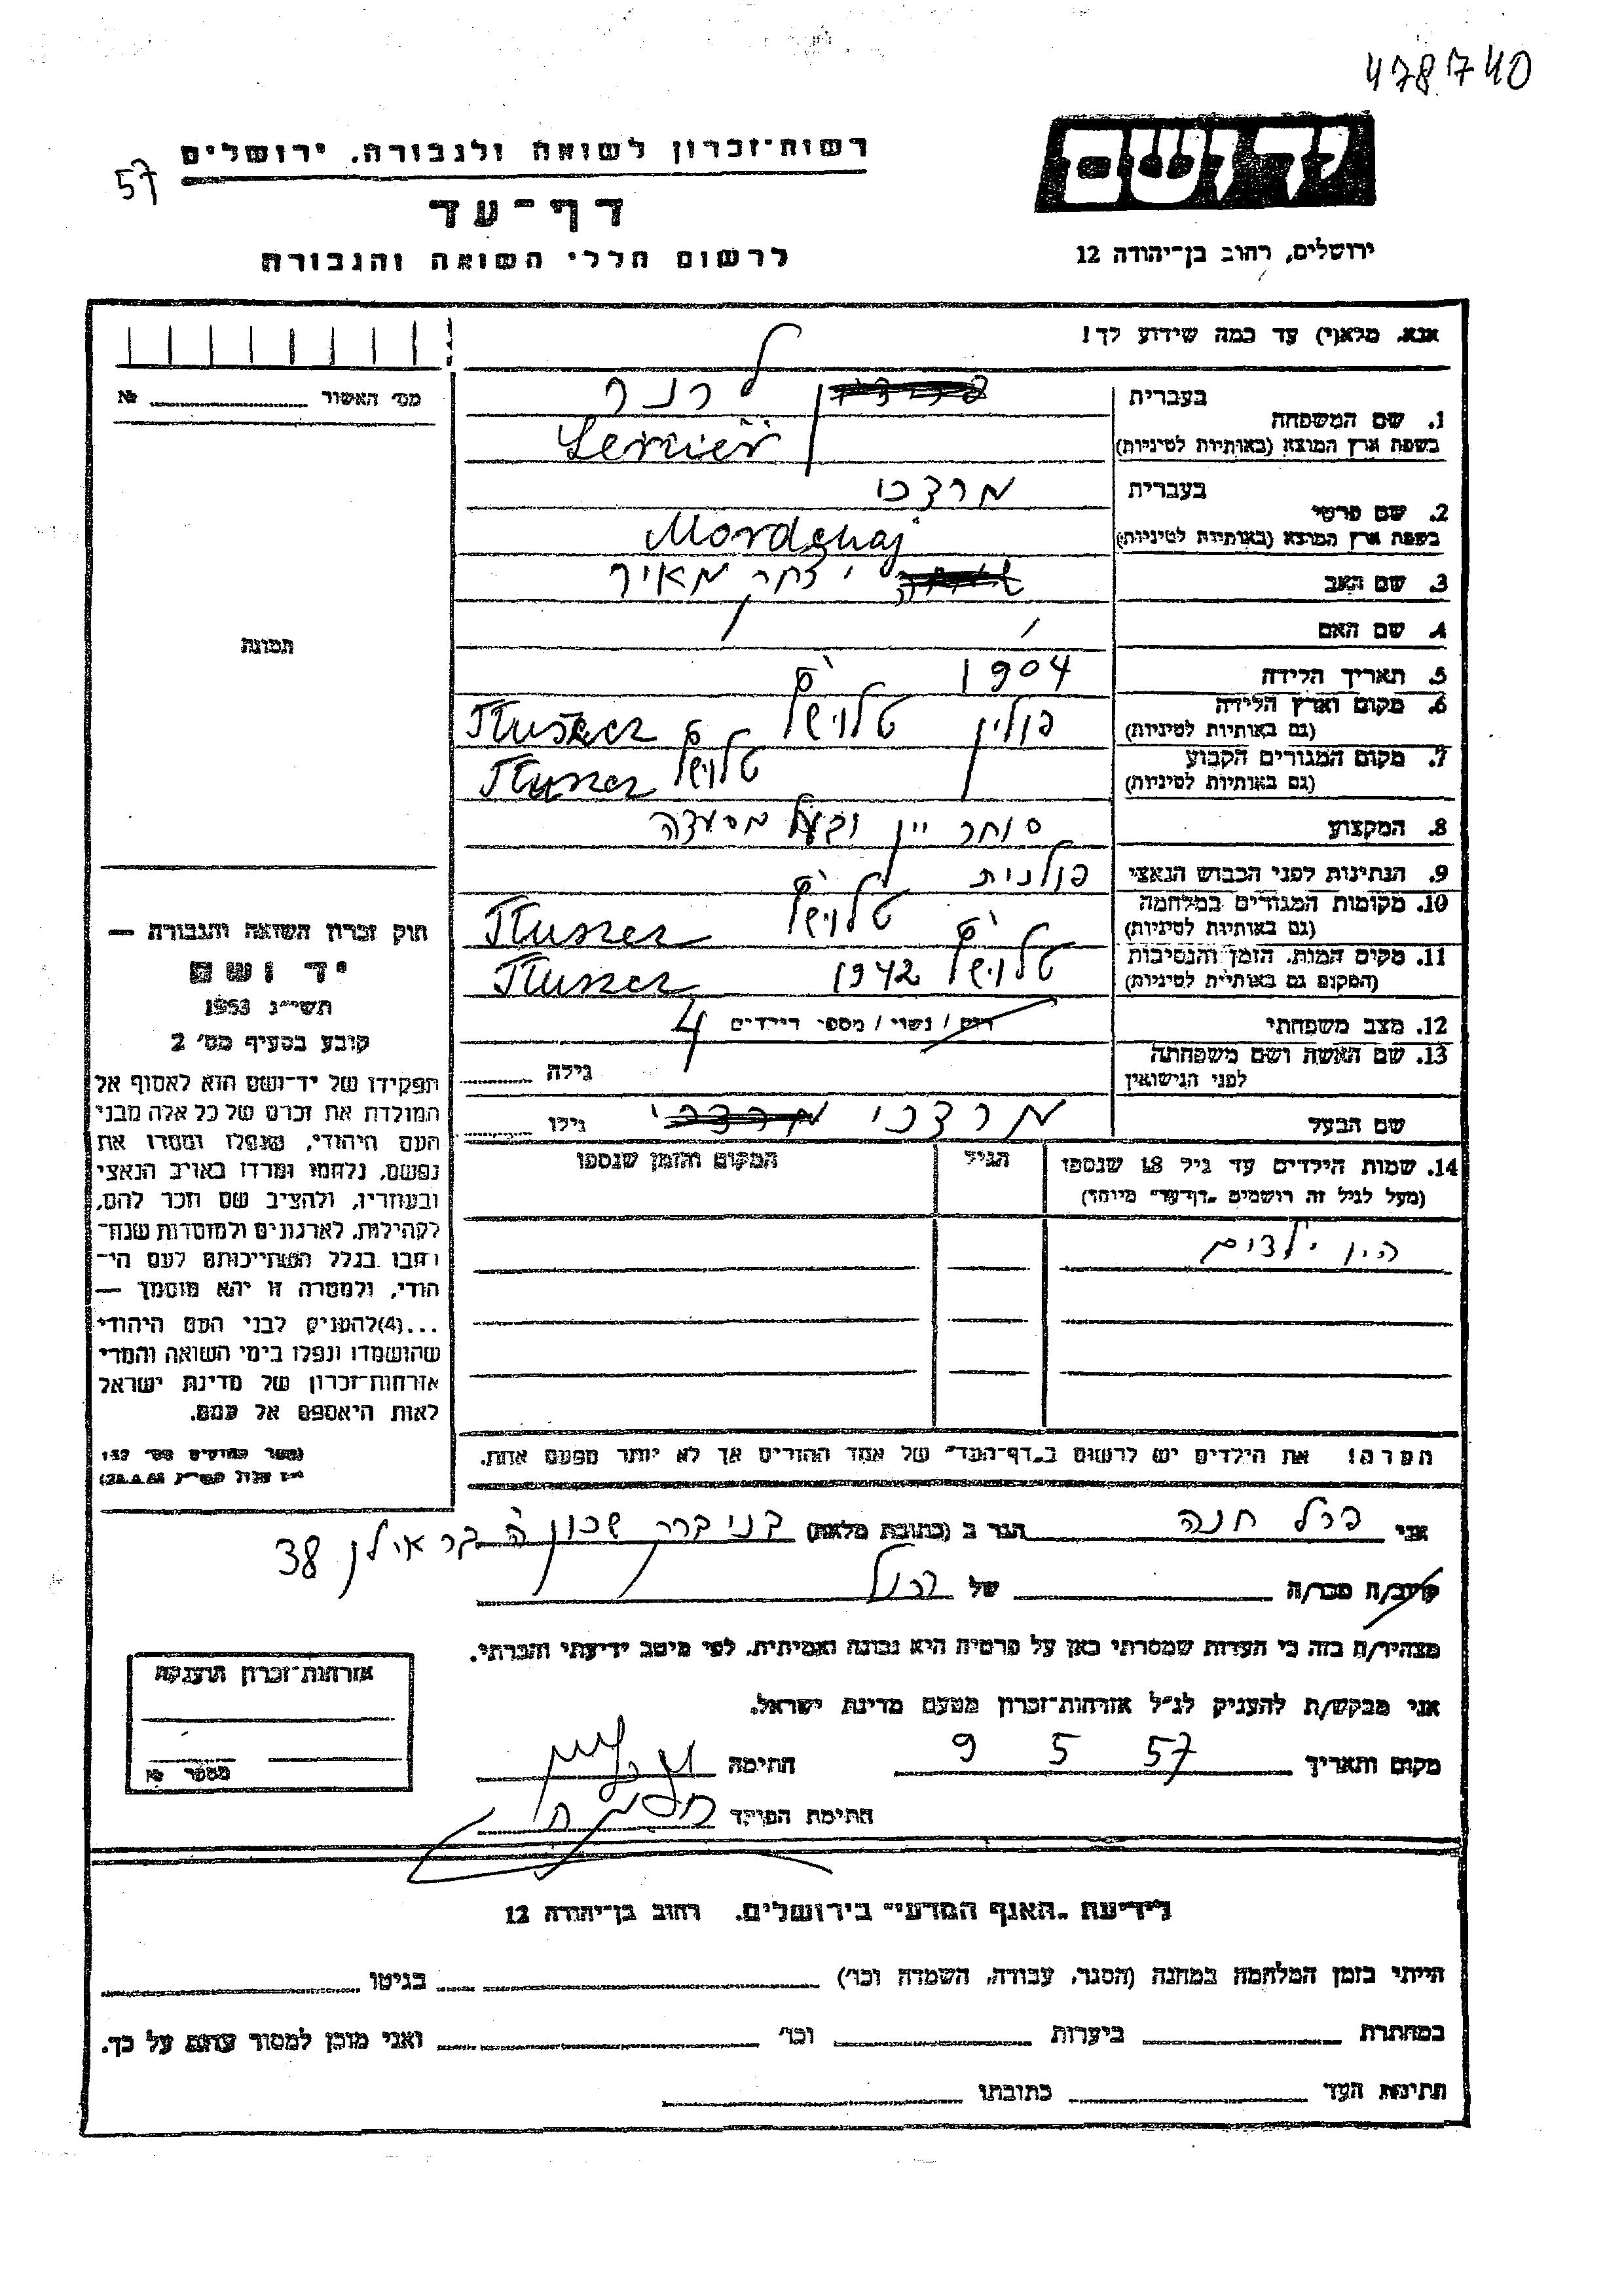 478740
יד ושם
רשות־זכרון לשואה ולגבורה. ירושלים
57
דף־עד
ירושלים, רחוב בן־יהודה 12
לרשום חללי השואה והגבורה
אנא. מלא(י) עד כמה שידוע לך!
מס׳ האשור № 
1. שם המשפחה
בעברית לרנר
בשפת ארץ המוצא (באותיות לטיניות) Lerner
2. שם פרטי
בעברית מרדכי
בשפת ארץ המוצא (באותיות לטיניות) Mordchaj
3. שם האב יצחק מאיר
4. שם האם
תמונה
5. תאריך הלידה 1904
6. מקום וארץ הלידה
(גם באותיות לטיניות) פולין
7. מקום המגורים הקבוע
(גם באותיות לטיניות) Tłuszcz
8. המקצוע סוחר יין ובעל מסעדה
9. הנתינות לפני הכבוש הנאצי פולנית
10. מקומות המגורים במלחמה
(גם באותיות לטיניות) Tłuszcz
11. מקום המות. הזמן והנסיבות
(המקום גם באותיות לטיניות) 1942 Tłuszcz
12. מצב משפחתי רוק / נשוי / מספר הילדים 4
13. שם האשה ושם משפחתה
לפני הנישואין גילה
שם הבעל מרדכי גילו
חוק זכרון השואה והגבורה —
יד ושם
תשי״ג 1953
קובע בסעיף מס׳ 2
תפקידו של יד־ושם הוא לאסוף אל
המולדת את זכרם של כל אלה מבני
העם היהודי, שנפלו ומסרו את
נפשם, נלחמו ומרדו באויב הנאצי
ובעוזריו, ולהציב שם וזכר להם,
לקהילות, לארגונים ולמוסדות שנח־
רבו בגלל השתייכותם לעם הי־
הודי, ולמטרה זו יהא מוסמך —
...(4)להעניק לבני העם היהודי
שהושמדו ונפלו בימי השואה והמרי
אזרחות־זכרון של מדינת ישראל
לאות היאספם אל עמם.
14. שמות הילדים עד גיל 18 שנספו
(מעל לגיל זה רושמים „דף־עד״ מיוחד)
הגיל
המקום והזמן שנספו
היו ילדים
הערה! את הילדים יש לרשום ב„דף־העד״ של אחד ההורים אך לא יותר מפעם אחת.
אני פרל חנה הגר ב (כתובת מלאה) בני ברק שכון ה בר אילן 38
קרוב/ה מכר/ה של
מצהיר/ה בזה כי העדות שמסרתי כאן על פרטיה היא נכונה ואמיתית. לפי מיטב ידיעתי והכרתי.
אני מבקש/ת להעניק לנ״ל אזרחות־זכרון מטעם מדינת ישראל.
מקום ותאריך 9 5 57 חתימה
חתימת הפוקד
אזרחות־זכרון הוענקה
מספר №
לידיעת „האגף המדעי״ בירושלים. רחוב בן־יהודה 12
הייתי בזמן המלחמה במחנה (הסגר, עבודה, השמדה וכו׳) בגיטו
במחתרת ביערות וכו׳ ואני מוכן למסור עדות על כך.
חתימת העד כתובתו